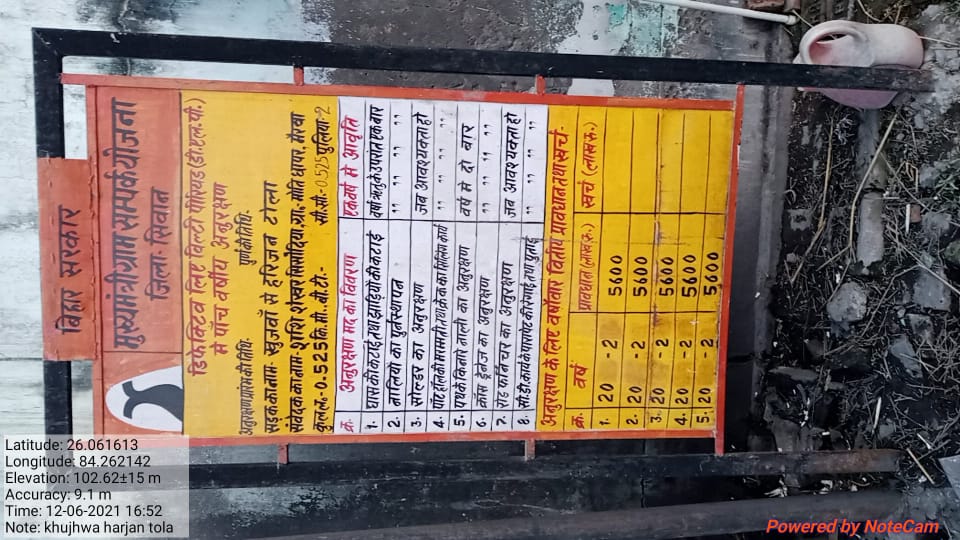 बिहार सरकार
मुख्यमंत्री ग्राम सम्पर्क योजना
जिला:- सिवान
डिफेक्टिव लिए बिल्टी पीरियड (डी.एल.पी.)
में पाँच वर्षीय अनुरक्षण
अनुरक्षण प्रारंभ की तिथि:- पूर्ण की तिथि:-
सड़क का नाम- खुजवाँ से हरिजन टोला
संवेदक का नाम- शशि शेखर सिसोदिया, ग्रा. मोति छापर, मैरवा
कुल ल०- 0.525 कि.मी. बी.टी:- सी.सी:- 0.525 पुलिया:-2
क्रं. अनुरक्षण मद का विवरण एक वर्ष में आवृति
1. घास की कटाई तथा झाड़ियों की कटाई वर्षा ऋतु के उपरांत एक बार
2. नालियों का पुर्नस्थापन " " " "
3. सोल्डर का अनुरक्षण जब आवश्यक्ता हो
4. " " "
5. पथ के किनारे नाली का अनुरक्षण वर्ष में दो बार
6. क्रॉस ड्रेनेज का अनुरक्षण " " " "
7. रोड फर्निचर का अनुरक्षण जब आवश्यक्ता हो
8. सी.डी. कार्य के पारापेट की रंगाई तथा पुताई " " "
अनुरक्षण के लिए वर्षोवार वित्तीय प्रावधान तथा खर्च-
क्रं. वर्ष प्रावधान (लाख रु.) खर्च (लाख रु.)
1. 20 - 2 5600
2. 20 - 2 5600
3. 20 - 2 5600
4. 20 - 2 5600
5. 20 - 2 5600
Latitude: 26.061613
Longitude: 84.262142
Elevation: 102.62±15 m
Accuracy: 9.1 m
Time: 12-06-2021 16:52
Note: khujhwa harjan tola
Powered by NoteCam